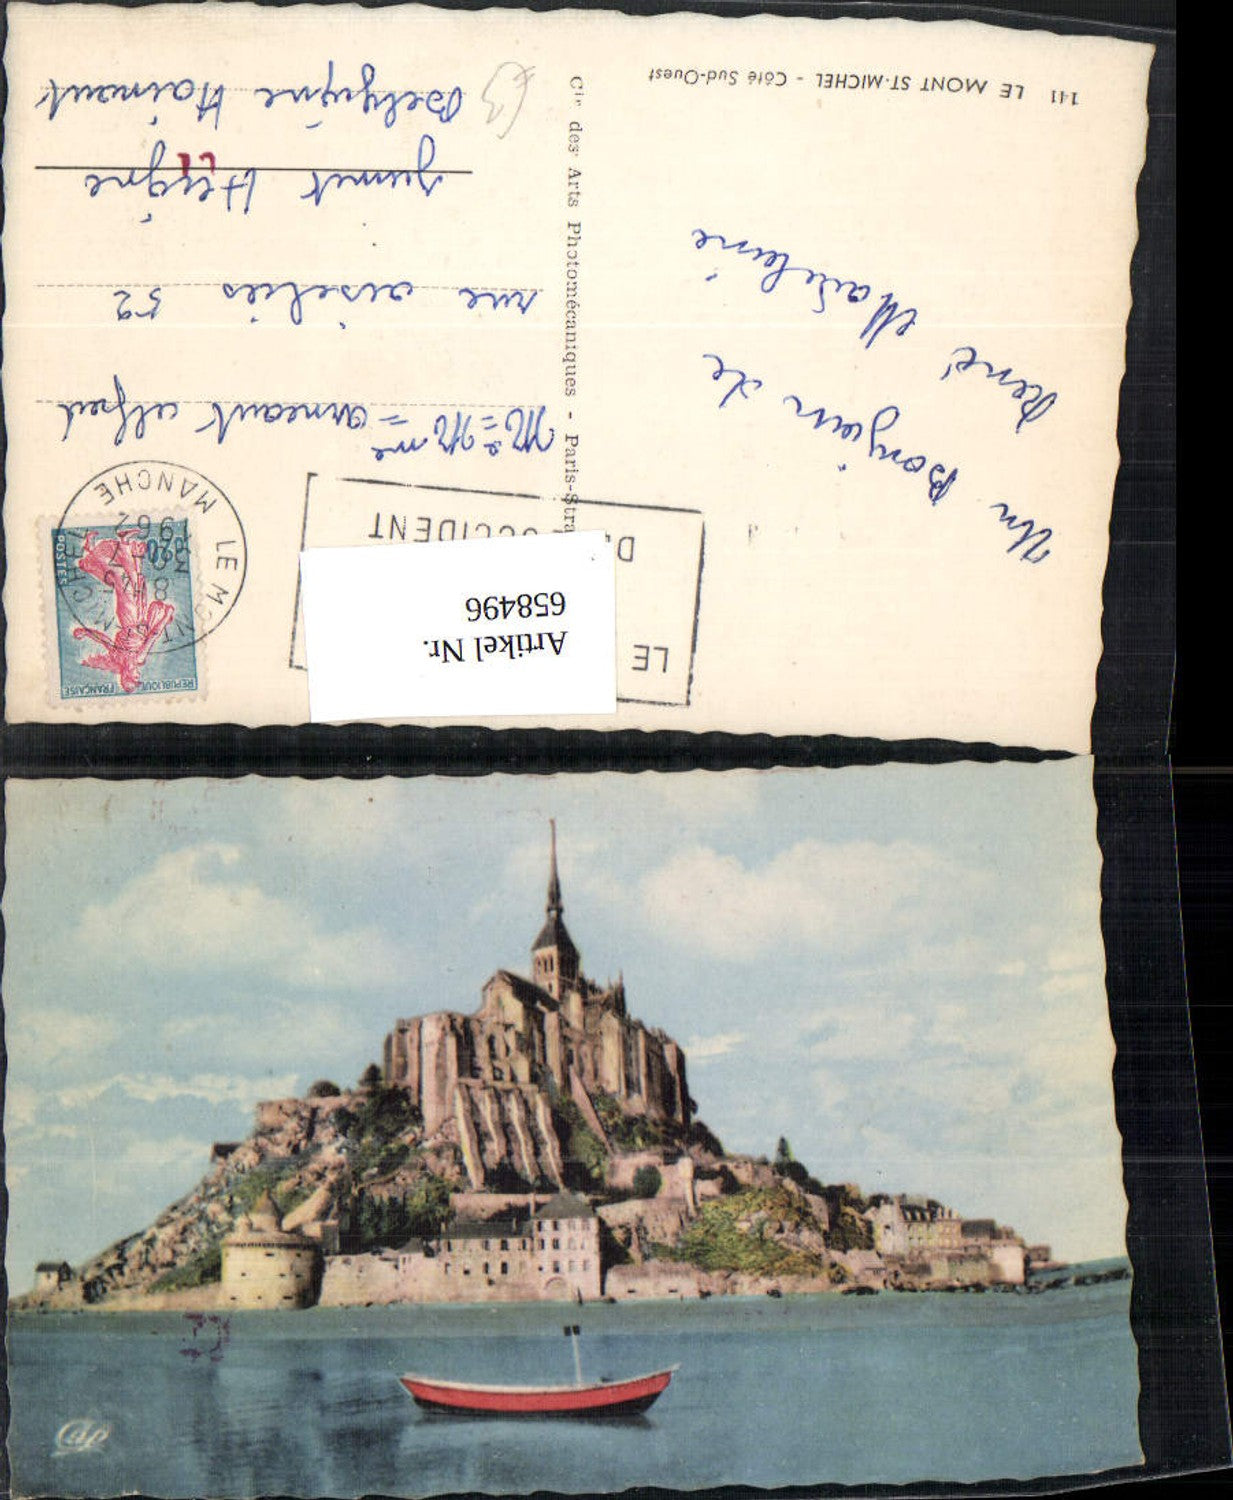 141 LE MONT ST-MICHEL - Côté Sud-Ouest
Un Bonjour de
René Madeleine
Cie des Arts Photomécaniques - Paris-Stra
LE
D'OCCIDENT
Artikel Nr.
658496
LE MONT-St-MICHEL
MANCHE
18H45
3-7
1962
REPUBLIQUE FRANÇAISE
0,20
POSTES
Mr & Mme alfred
rue 52
Jumet
Belgique Hainaut
Cap